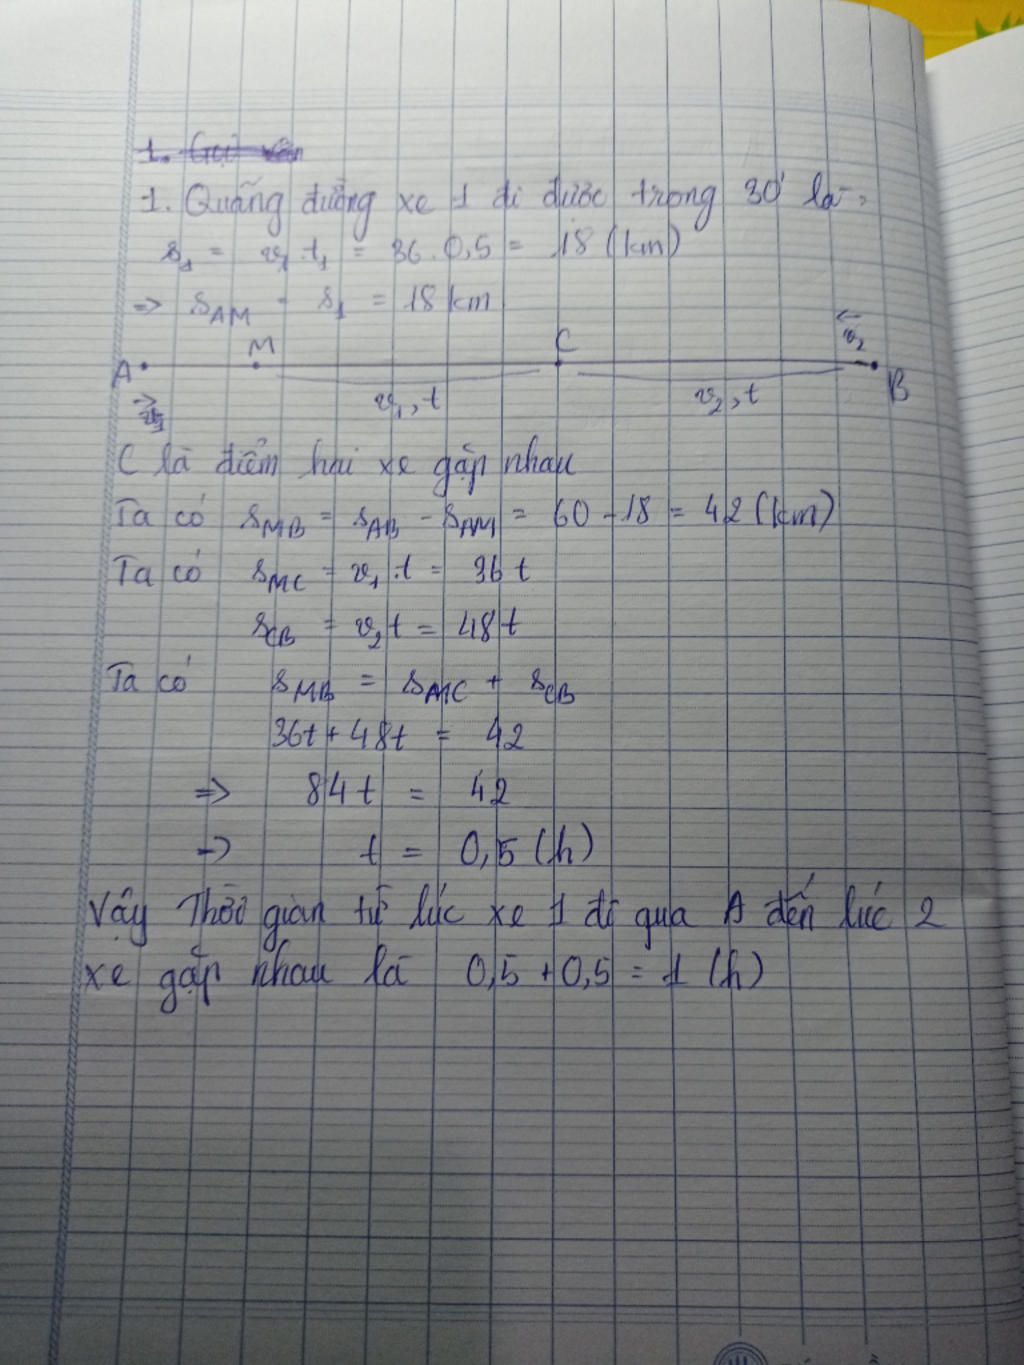 1. Quãng đường xe 1 đi được trong 30' là:
s₁ = v₁.t₁ = 36.0,5 = 18 (km)
=> s_AM = s₁ = 18 km
A M C v₂ B
v₁, t v₂, t
C là điểm hai xe gặp nhau
Ta có s_MB = s_AB - s_AM = 60 - 18 = 42 (km)
Ta có s_MC = v₁.t = 36t
s_CB = v₂t = 48t
Ta có s_MB = s_MC + s_CB
36t + 48t = 42
=> 84t = 42
=> t = 0,5 (h)
Vậy Thời gian từ lúc xe 1 đi qua A đến lúc 2
xe gặp nhau là 0,5 + 0,5 = 1 (h)